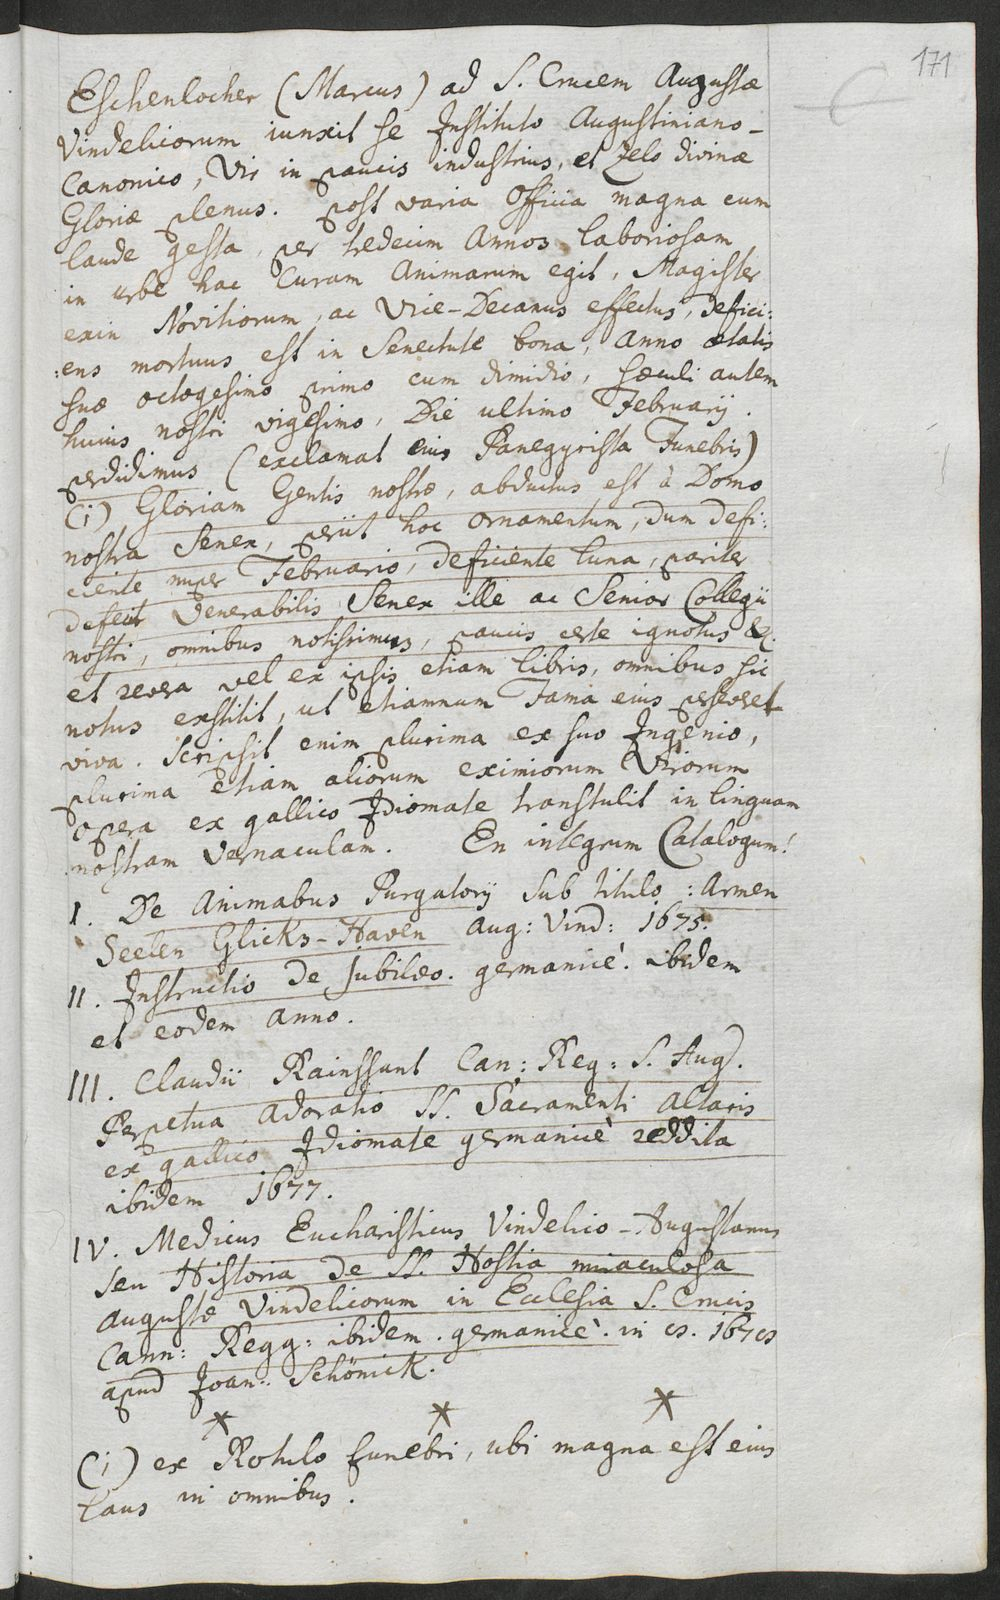 171
Eschenlocher (Marcus) ad S. Crucem Augustæ
Vindelicorum iunxit se Instituto Augustiniano-
Canonico, Vir in paucis industrius, et Zelo divinæ
Gloriæ plenus. post varia Officia magna cum
laude gesta, per tredecim Annos laboriosam
in urbe hac Curam Animarum egit, Magister
exin Novitiorum, ac Vice-Decanus effectus, defici:
:ens mortuus est in Senectute bona, Anno ætatis
suæ octogesimo primo cum dimidio, sæculi autem
huius nostri vigesimo, Die ultimo Februarij.
perdidimus (exclamat eius Panegyrista Funebris)
(i) Gloriam Gentis nostræ, abductus est à Domo
nostra Senex, periit hoc ornamentum, dum defi:
ciente nuper Februario, deficiente luna, pariter
defecit Venerabilis Senex ille ac Senior Collegii
nostri, omnibus notissimus, paucis certe ignotus &c.
et revera vel ex ipsis etiam libris, omnibus sic
notus exstitit, ut etiamnum Fama eius perseveret
viva. Scripsit enim plurima ex suo Ingenio,
plurima etiam aliorum eximiorum Virorum
opera ex gallico Idiomate transtulit in linguam
nostram vernaculam. En integrum Catalogum!
I. De Animabus Purgatorij sub titulo: Armen
Seelen Glicks-Haven Aug: Vind: 1675.
II. Instructio de Jubilæo. germanicè. ibidem
et eodem anno.
III. Claudii Rainssant Can: Reg: S. Aug.
Perpetua Adoratio SS. Sacramenti Altaris
ex gallico Idiomate germanicè reddita
ibidem 1677.
IV. Medicus Eucharisticus Vindelico-Augustanus
seu Historia de SS. Hostia miraculosa
Augustæ Vindelicorum in Ecclesia S. Crucis
Cann: Regg: ibidem. germanicè. in
apud Joan: Schönick.
* * *
(i) ex Rotulo funebri, ubi magna est eius
laus in omnibus.